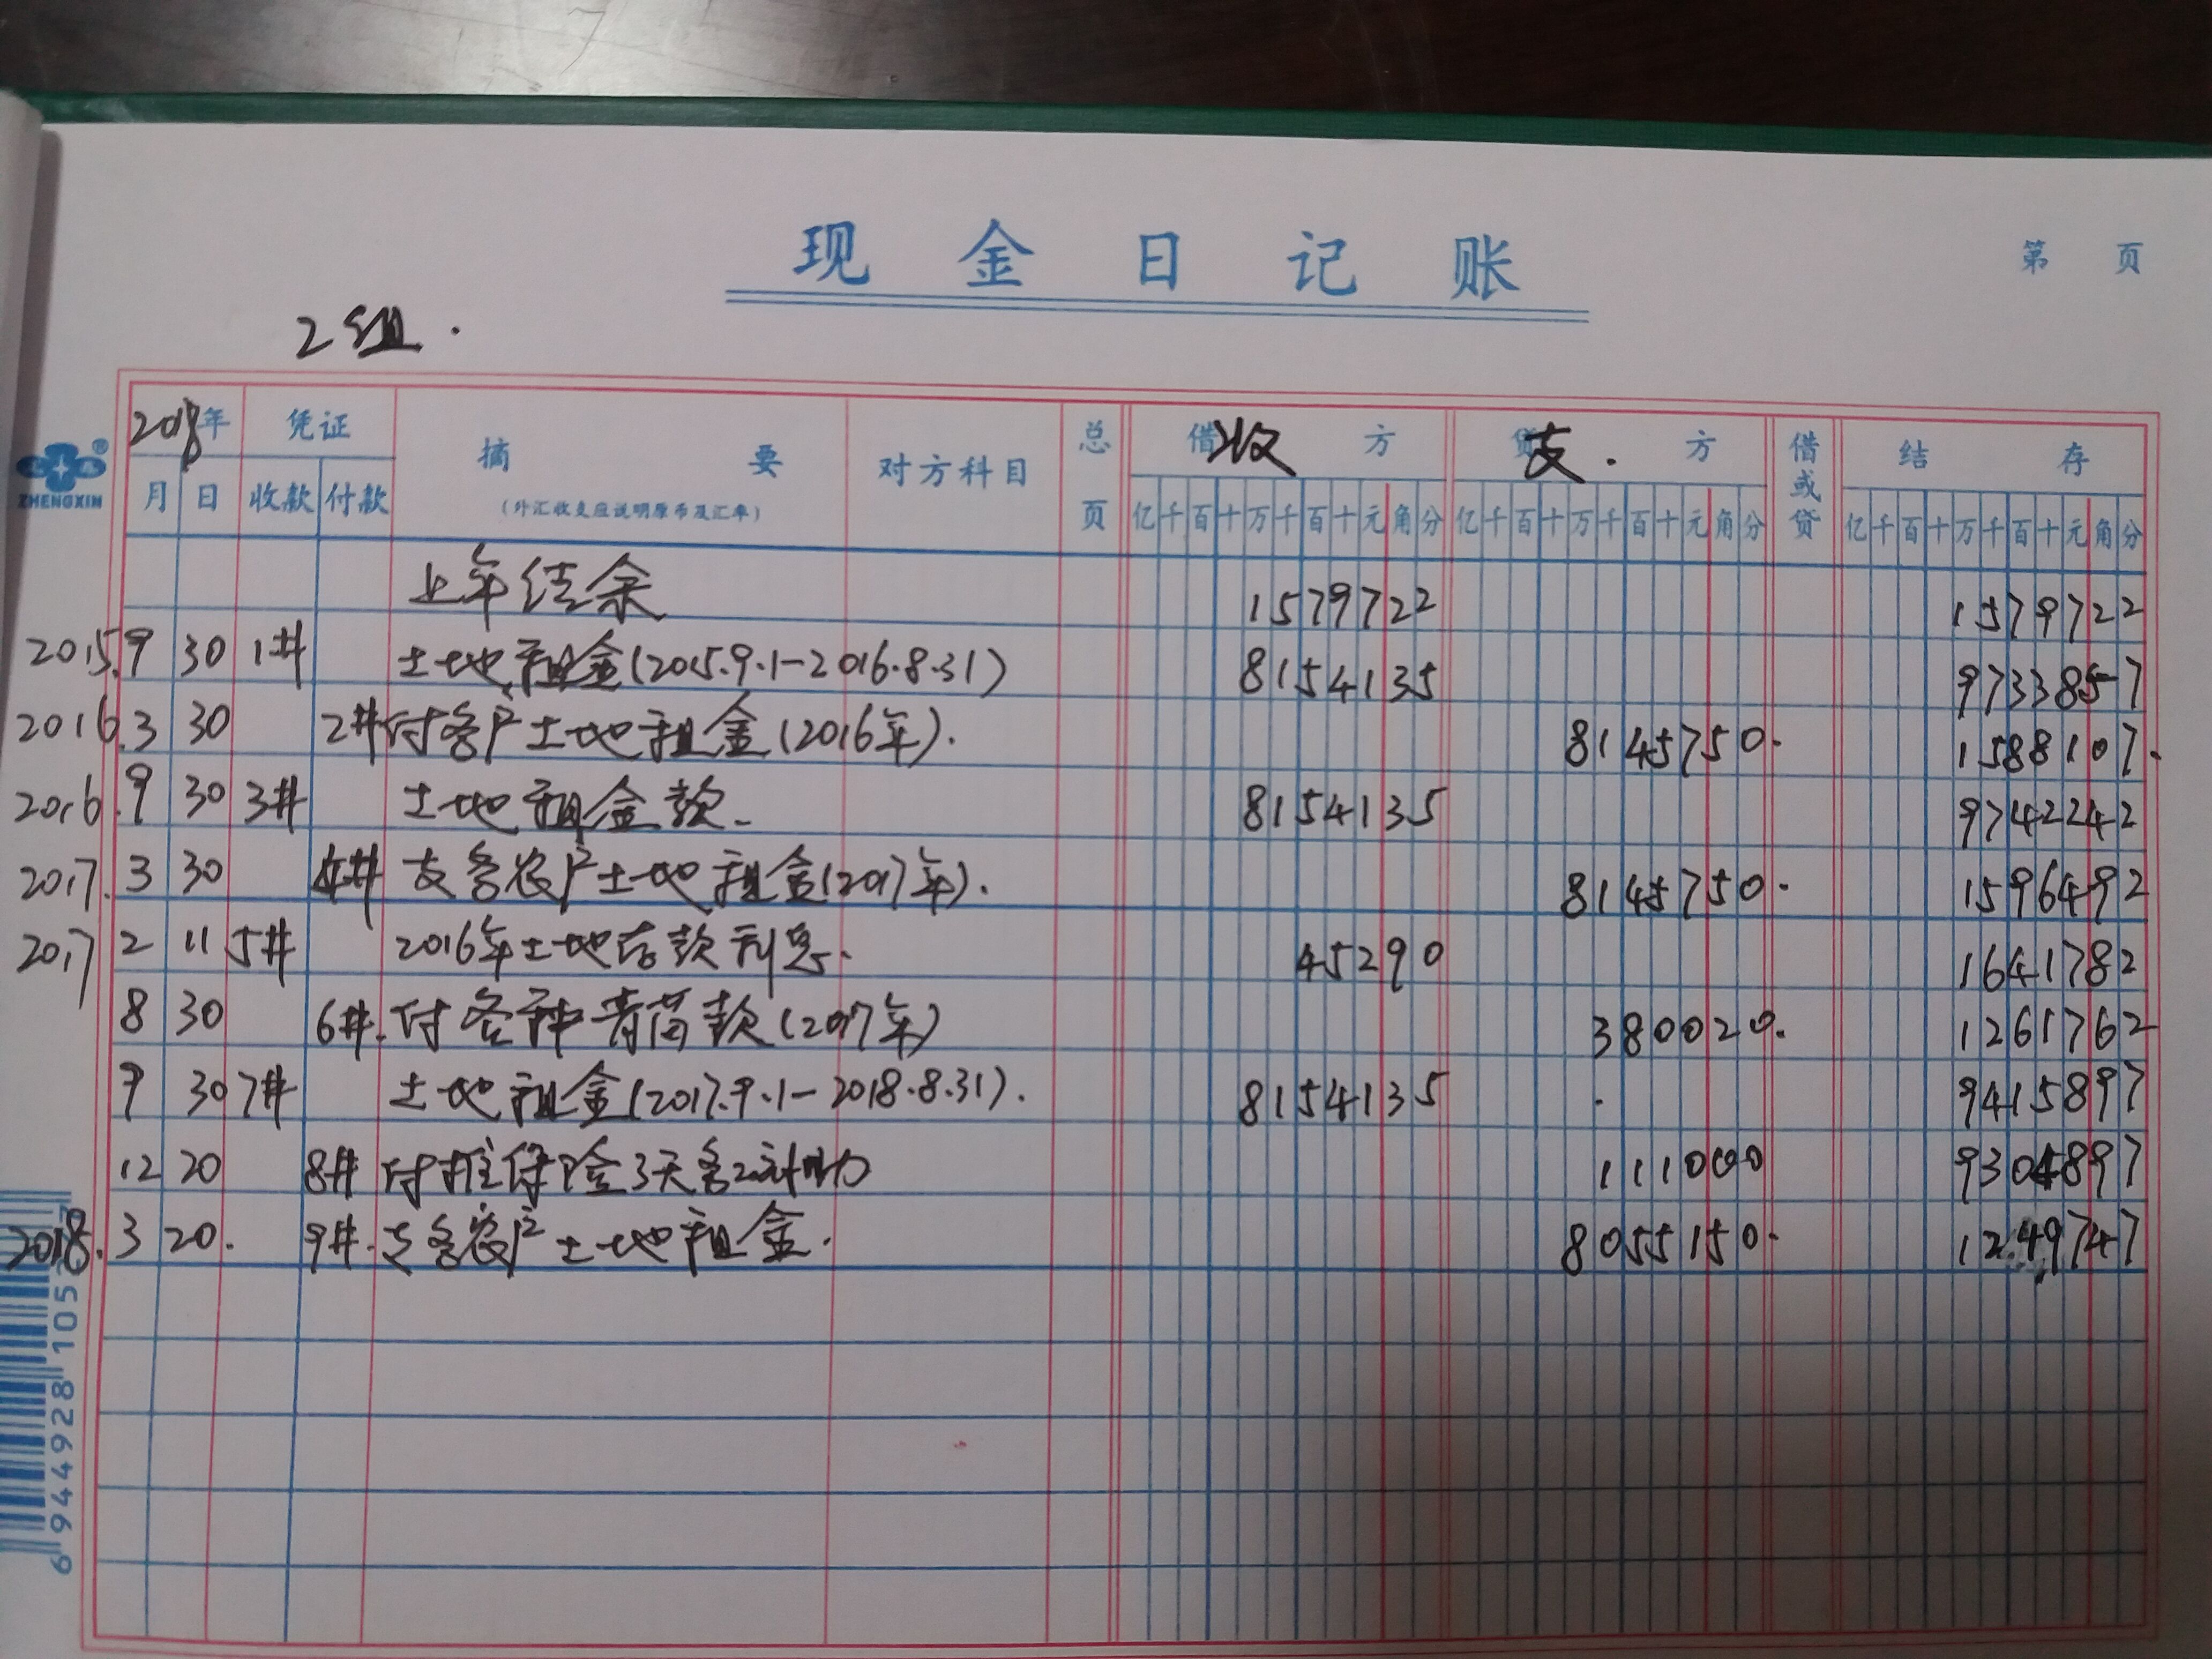 现金日记账
第 页
2组.
2018年 凭证 摘要 对方科目 总页 借收方 贷支.方 借或贷 结存
月 日 收款 付款 (外汇收支应说明原币及汇率) 亿千百十万千百十元角分 亿千百十万千百十元角分 亿千百十万千百十元角分
ZHENGXIN
上年结余 1579722 1579722
2015.9 30 1# 土地租金(2015.9.1-2016.8.31) 8154135 9733857
2016.3 30 2# 付各户土地租金(2016年). 8145750. 1588107.
2016.9 30 3# 土地租金款. 8154135 9742242
2017.3 30 4# 支各农户土地租金(2017年). 8145750. 1596492
2017 2 11 5# 2016年土地存款利息. 45290 1641782
8 30 6#. 付各种青苗款(2017年) 380020. 1261762
9 30 7# 土地租金(2017.9.1-2018.8.31). 8154135 9415897
12 20 8# 付 保险3天 补助 111000 9304897
2018.3 20. 9#. 支各农户土地租金. 8055150. 1249747
6 944928 1053